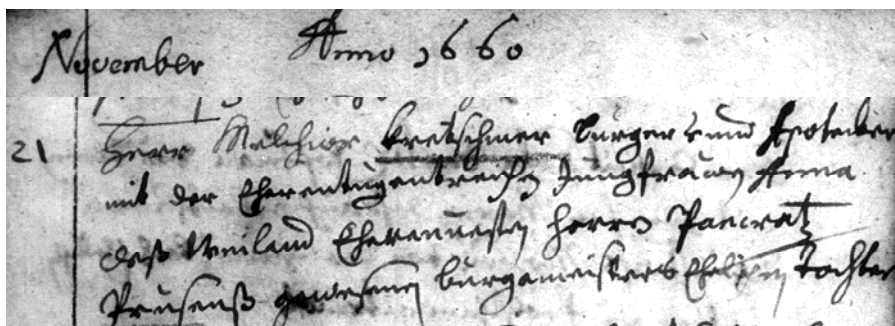 November Anno 1660
21 Herr Melchior Kretschmer burger vnnd Apotecker
mit der Eherentugentreichen Jungfrawen Anna
deß Weiland Eherenuesten Herren Pancratz
Prusenß gewesenen burgameisters Ehelichen Tochter